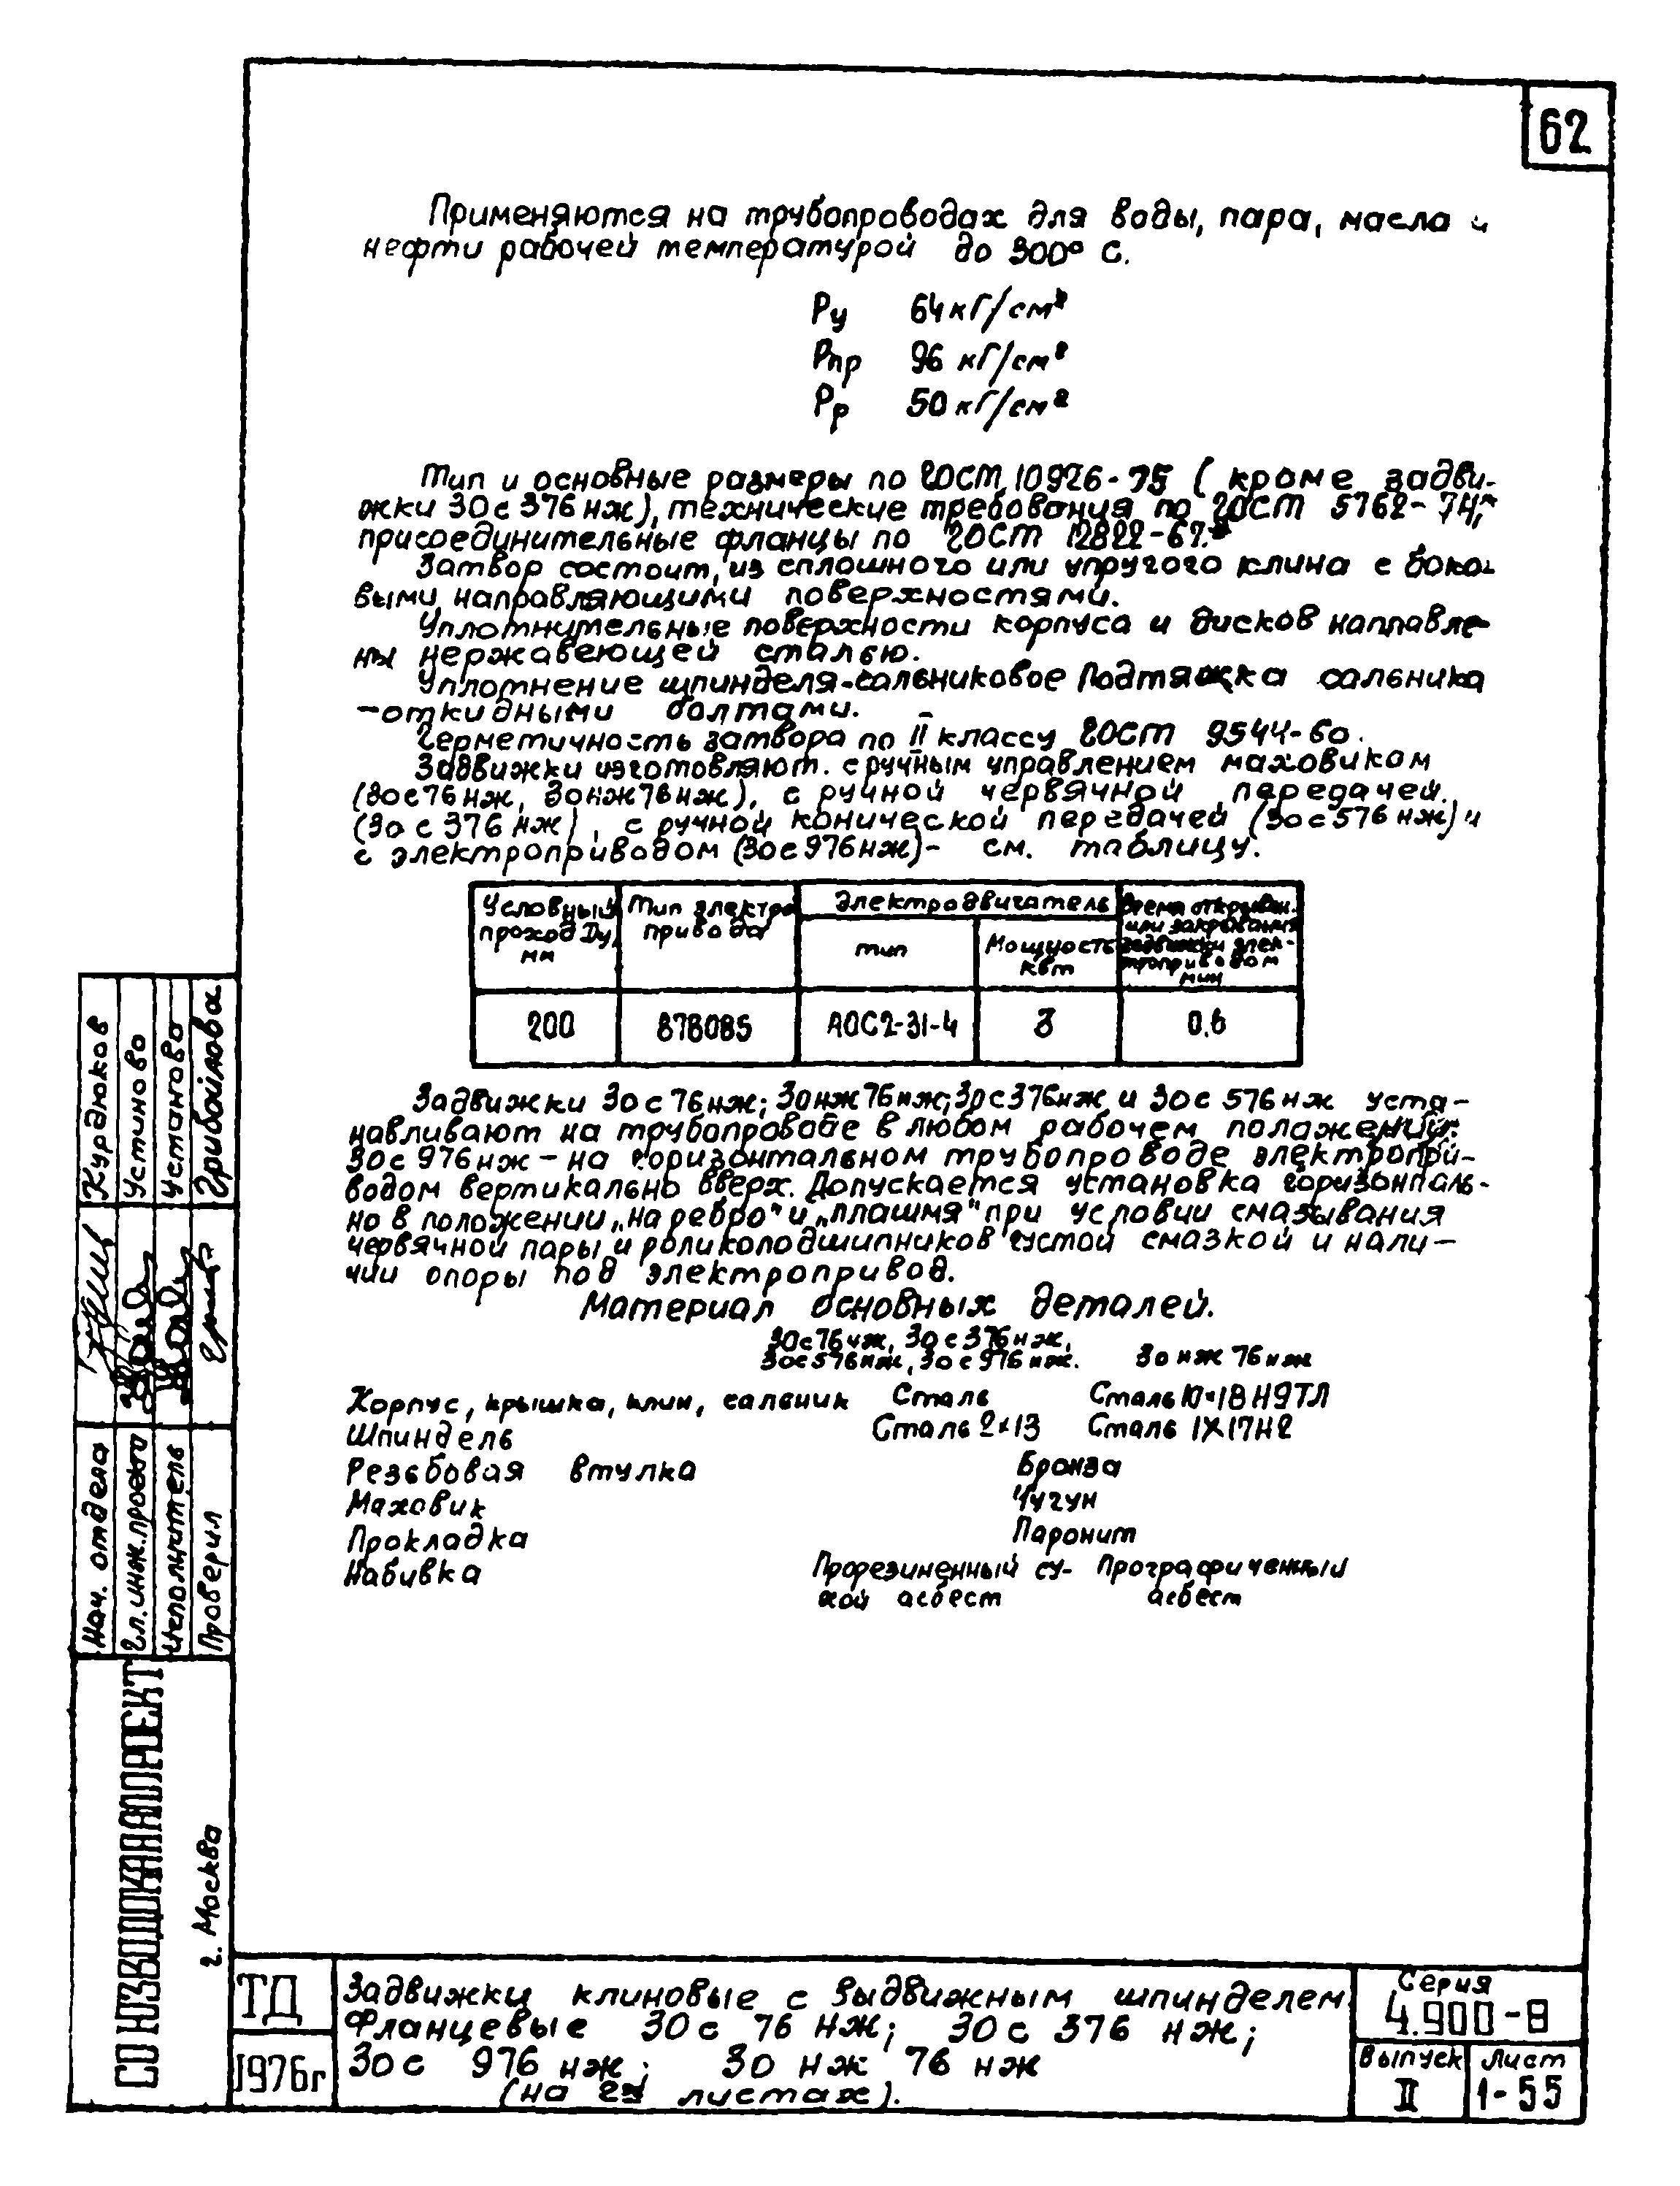 62
Применяются на трубопроводах для воды, пара, масла и
нефти рабочей температурой до 300° С.
Ру 64 кГ/см²
Рпр 96 кГ/см²
Рр 50 кГ/см²
Тип и основные размеры по ГОСТ 10926-75 (кроме задви-
жки 30с 376 нж), технические требования по ГОСТ 5762-74,*
присоединительные фланцы по ГОСТ 12822-67.*
Затвор состоит из сплошного или упругого клина с боко-
выми направляющими поверхностями.
Уплотнительные поверхности корпуса и дисков наплавле-
ны нержавеющей сталью.
Уплотнение шпинделя-сальниковое Подтяжка сальника
-откидными болтами.
Герметичность затвора по II классу ГОСТ 9544-60.
Задвижки изготовляют. с ручным управлением маховиком
(30с76нж, 30нж76нж), с ручной червячной передачей
(30 с 376 нж), с ручной конической передачей (30с576 нж) и
с электроприводом (30с976нж)- см. таблицу.
Условный проход Ду, мм
Тип электро привода
Электродвигатель
тип
Мощность квт
Время открыван. или закрывания задвижки элек-троприводом мин
200 87В085 АОС2-31-4 3 0,6
Задвижки 30с76нж; 30нж76нж; 30с376нж и 30с 576нж уста-
навливают на трубопроводе в любом рабочем положении;
30с 976нж - на горизонтальном трубопроводе электропри-
водом вертикально вверх. Допускается установка горизонталь-
но в положении „на ребро" и „плашмя" при условии смазывания
червячной пары и роликоподшипников густой смазкой и нали-
чии опоры под электропривод.
Материал основных деталей.
30с76нж, 30с376нж,
30с576нж, 30с976нж. 30нж76нж
Корпус, крышка, клин, сальник Сталь Сталь 10х18Н9ТЛ
Шпиндель Сталь 2х13 Сталь 1Х17Н2
Резьбовая втулка Бронза
Маховик Чугун
Прокладка Паронит
Набивка Прорезиненный су- Прографиченный
хой асбест асбест
Нач. отдела Курдюков
Гл.инж.проекта Устинова
Исполнитель Устинова
Проверил Грибойлова
СОЮЗВОДОКАНАЛПРОЕКТ
г. Москва
ТД
1976г
Задвижки клиновые с выдвижным шпинделем
фланцевые 30с 76 нж; 30с 376 нж;
30с 976 нж; 30 нж 76 нж
(на 2х листах).
Серия
4.900-8
Выпуск
II
Лист
1-55